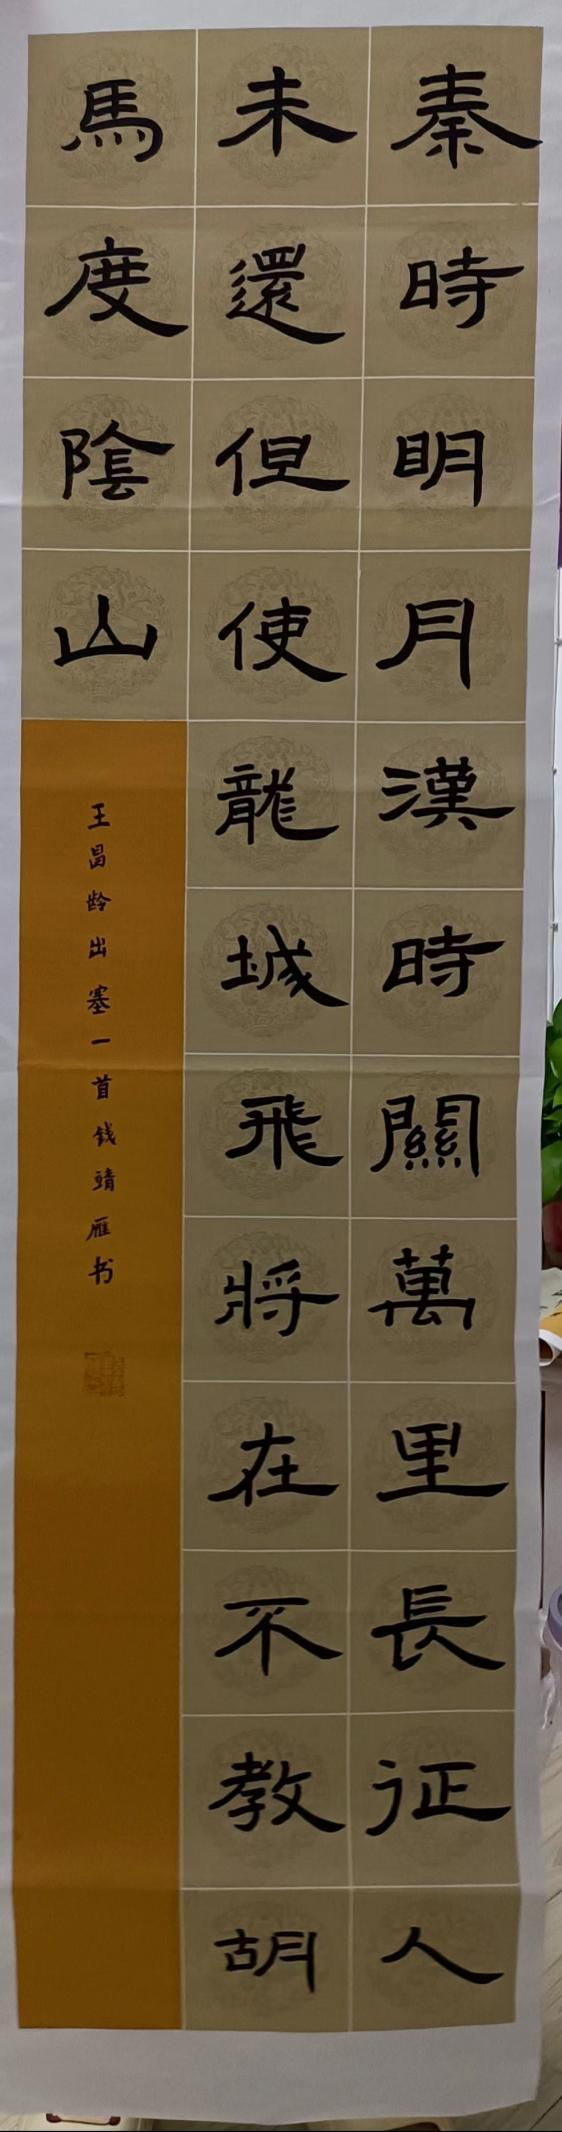 秦時明月漢時關萬里長征人
未還但使龍城飛將在不教胡
馬度陰山
王昌龄出塞一首钱靖雁书